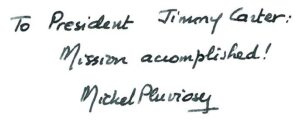 To President Jimmy Carter:
Mission accomplished!
Michel Pluviose